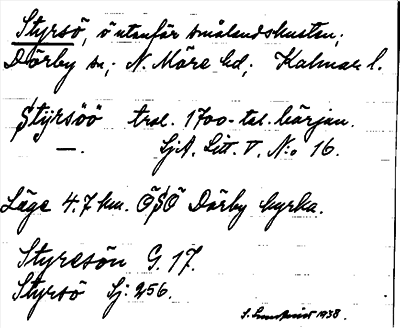 Styrsö, ö utanför smålandskusten;
Dörby sn; N. Möre hd; Kalmar l.
Styrsöö trol. 1700-tal. början.
—. LjA. Litt. V. N:o 16.
Läge 4.7 km. ÖSÖ Dörby kyrka.
Styresön G. 17.
Styrsö Sj: 256.
1938.